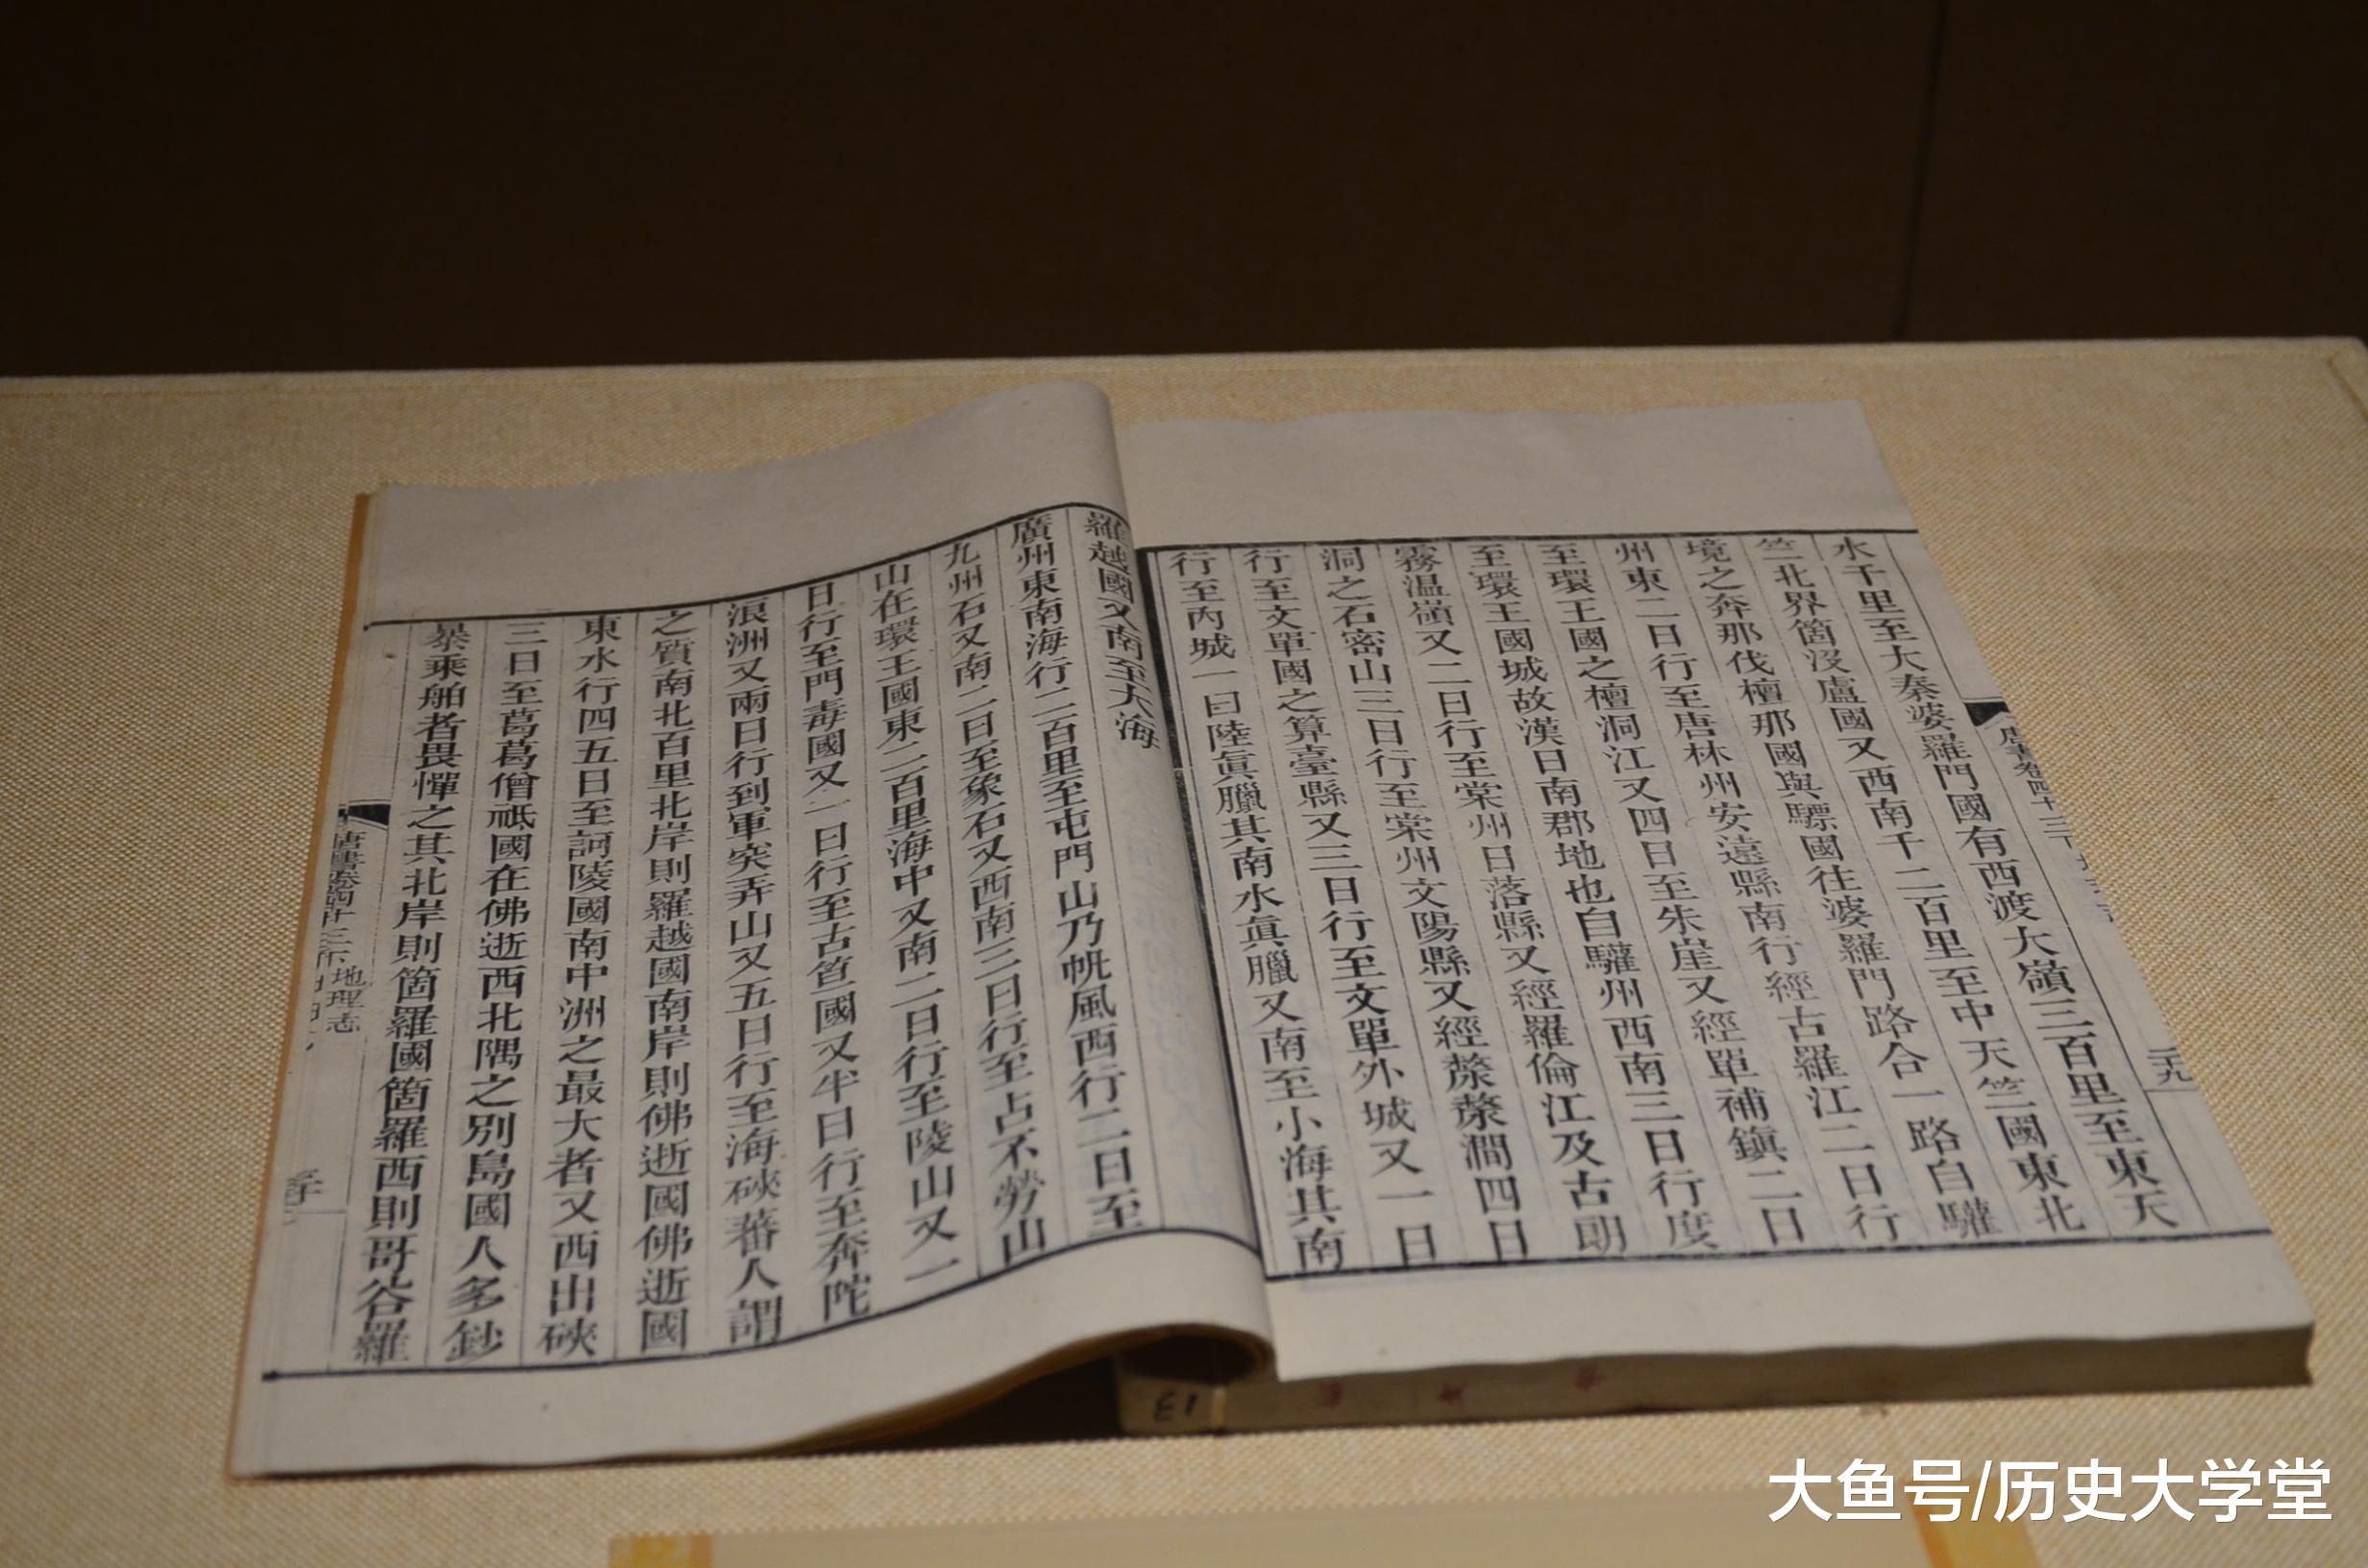 水千里至大秦婆羅門國又西渡大嶺三百里至東天
竺北界箇没盧國又西南千二百里至中天竺國東北
境之奔那伐檀那國與驃國往婆羅門路合一路自驩
州東二日行至唐林州安遠縣南行經古羅江二日行
至環王國之檀洞江又四日至朱崖又經單補鎮二日
至環王國城故漢日南郡地也自驩州西南三日行度
霧温嶺又二日行至棠州日落縣又經羅倫江及古朗
洞之石密山三日行至棠州文陽縣又經漦漦澗四日
行至文單國之算臺縣又三日行至文單外城又一日
行至内城一曰陸眞臘其南水眞臘又南至小海其南
羅越國又南至大海
廣州東南海行二百里至屯門山乃帆風西行二日至
九州石又南二日至象石又西南三日行至占不勞山
山在環王國東二百里海中又南二日行至陵山又一
日行至門毒國又一日行至古笪國又半日行至奔陀
浪洲又兩日行到軍突弄山又五日行至海硤蕃人謂
之質南北百里北岸則羅越國南岸則佛逝國佛逝國
東水行四五日至訶陵國南中洲之最大者又西出硤
三日至葛葛僧祗國在佛逝西北隅之別島國人多鈔
暴乘舶者畏憚之其北岸則箇羅國箇羅西則哥谷羅
唐書卷四十三下
地理志
E1
大鱼号/历史大学堂